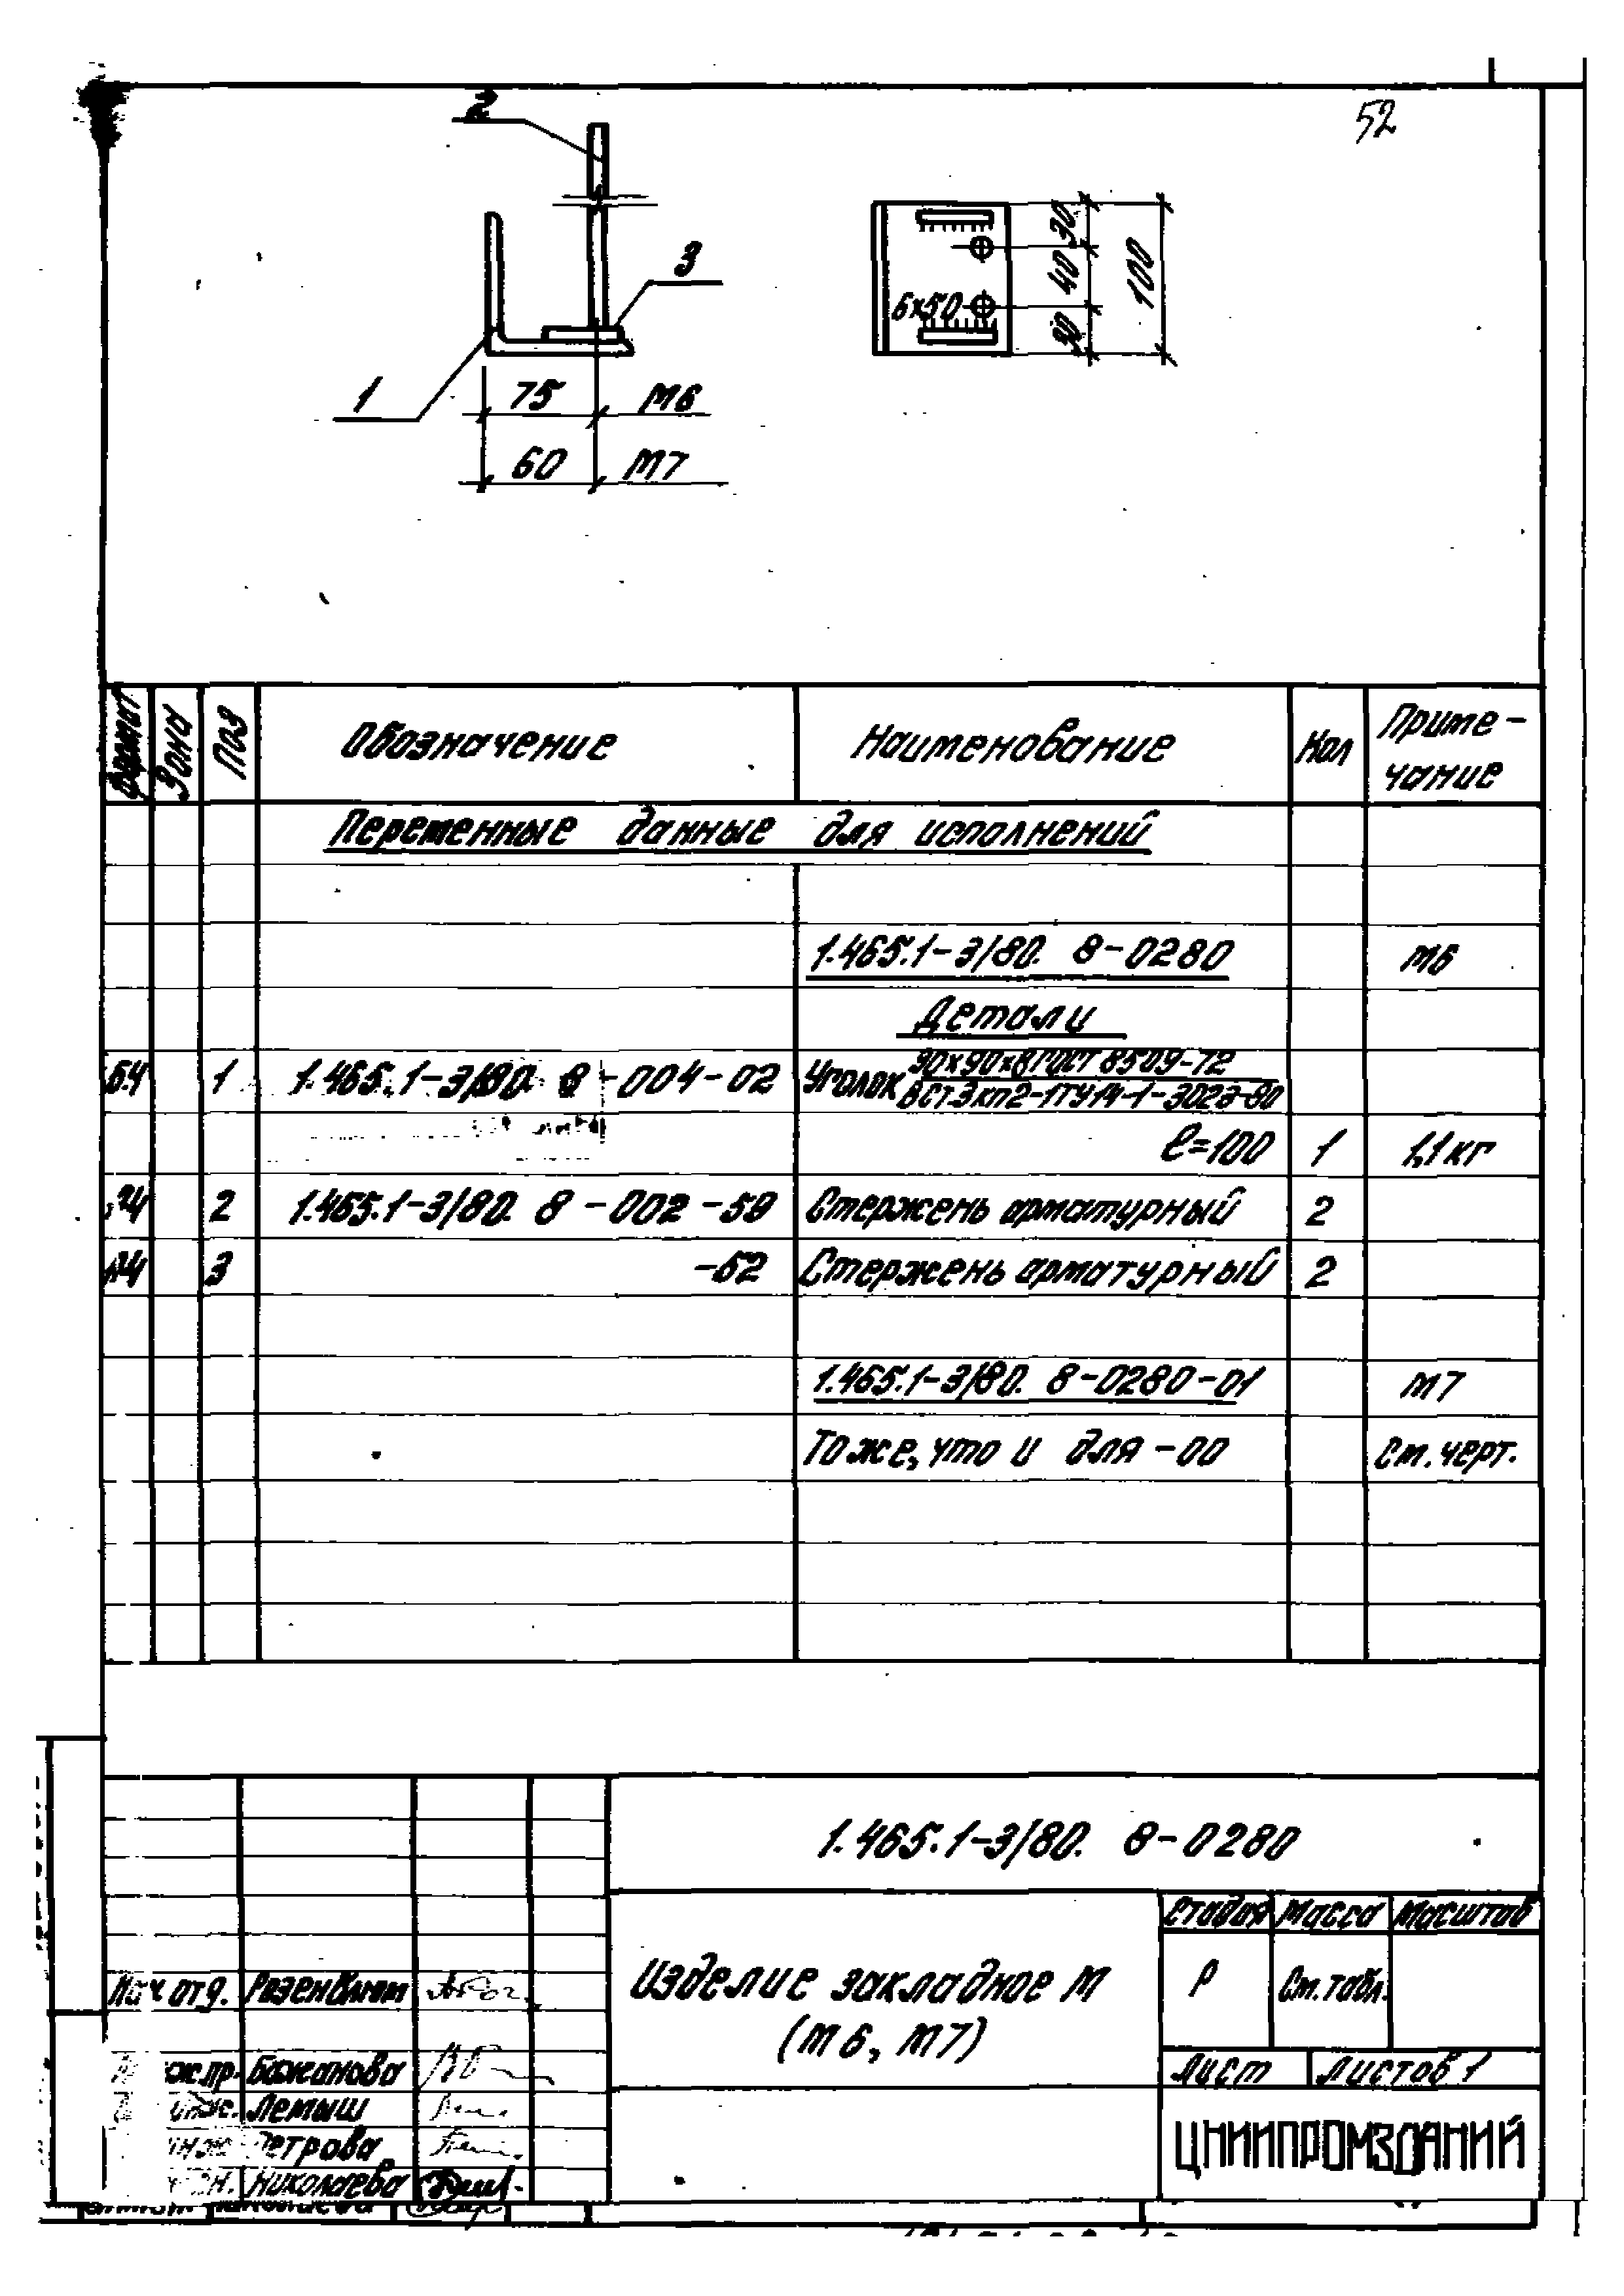 52
2
3
1
75 М6
60 М7
6×50
30
40
30
100
Формат Зона Поз Обозначение Наименование Кол Приме-
чание
Переменные данные для исполнений
1.465.1-3/80. 8-0280 М6
Детали
БЧ 1 1.465.1-3/80. 8-004-02 Уголок 90×90×8 ГОСТ 8509-72
ВСт3кп2-1ТУ14-1-3023-80
ℓ=100 1 1,1кг
2 1.465.1-3/80. 8-002-59 Стержень арматурный 2
3 -62 Стержень арматурный 2
1.465.1-3/80. 8-0280-01 М7
То же, что и для -00 См. черт.
1.465.1-3/80. 8-0280
Стадия Масса Масштаб
Изделие закладное М
(М6, М7)
Р См. табл.
Лист Листов 1
ЦНИИПРОМЗДАНИЙ
Нач. отд. Розенблюм
Бажанова
Лемыш
Петрова
Николаева